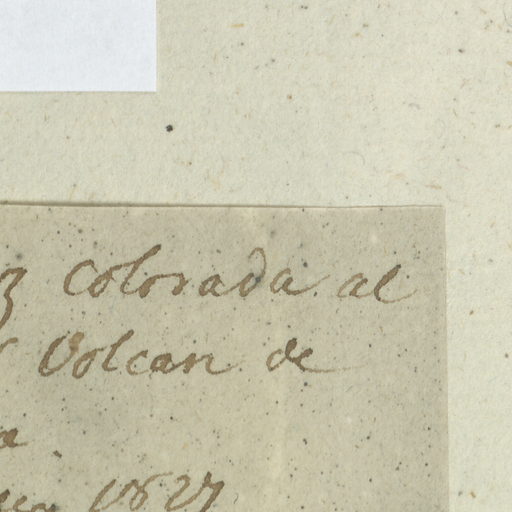 z colorada al
Volcan de
a
1827